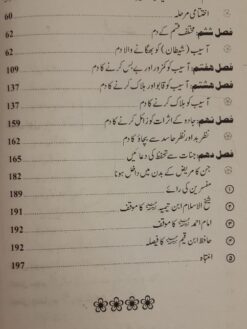 اختتامی مرحلہ 60
فصل ششم: مختلف قسم کے دم 62
آسیب (شیطان) کو بھگانے والا دم 62
فصل ہفتم: آسیب کو کمزور اور بے بس کرنے کا دم 109
فصل ہشتم: آسیب کو قابو اور ہلاک کرنے کا دم 137
آسیب کو ہلاک کرنے کا دم 137
فصل نہم: جادو کے اثرات کو زائل کرنے کا دم 159
نظر بد اور نظر حاسد سے بچاؤ کا دم 162
فصل دہم: جنات سے تحفظ کی دعائیں 165
جن کا مریض کے بدن میں داخل ہونا 182
① مفسرین کی رائے 189
② شیخ الاسلام ابن تیمیہ کا موقف 191
③ امام احمد کا موقف 192
④ حافظ ابن قیم کا فیصلہ 192
⑤ انتباہ 197